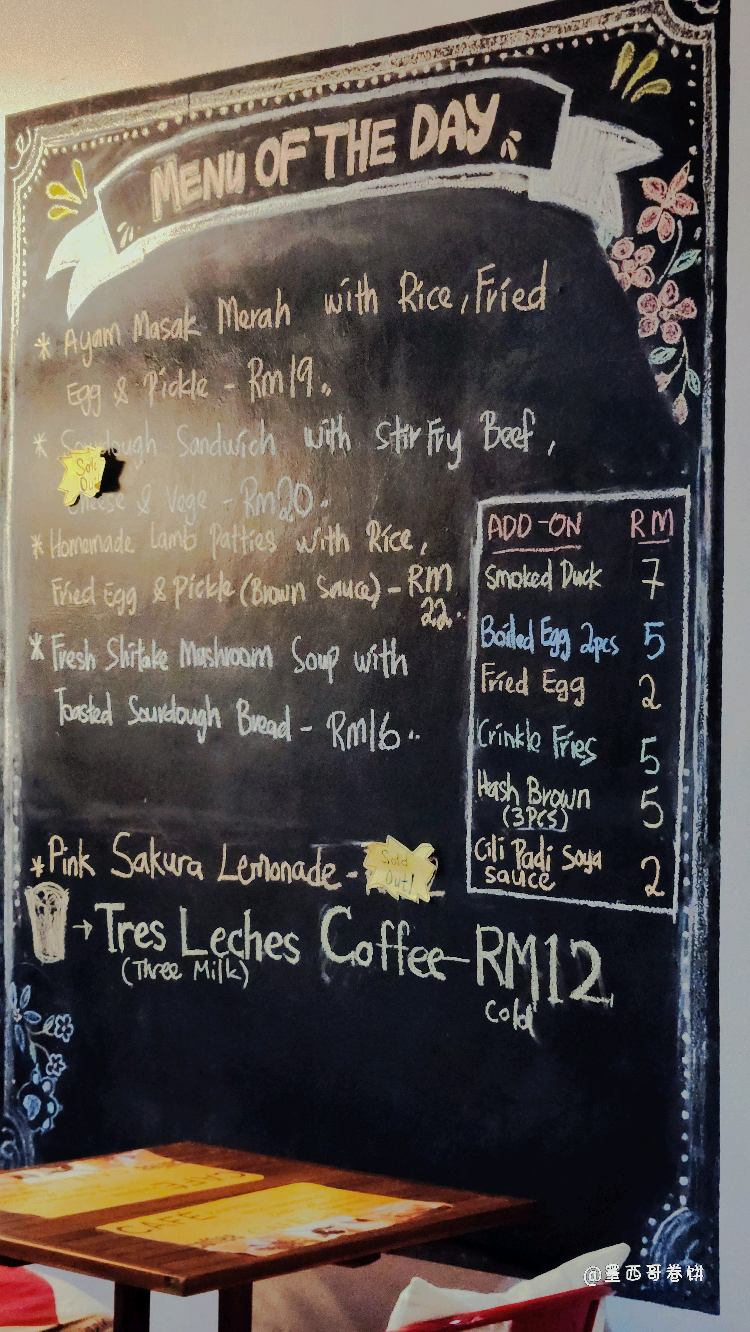 MENU OF THE DAY
* Ayam Masak Merah with Rice, Fried
Egg & Pickle - Rm19.
* Sourdough Sandwich with Stir Fry Beef,
Sold
Out
Cheese & Vege - Rm20.
* Homemade Lamb Patties with Rice,
Fried Egg & Pickle (Brown Sauce) - RM
22..
* Fresh Shitake Mushroom Soup with
Toasted Sourdough Bread - RM16..
ADD-ON RM
Smoked Duck 7
Boiled Egg 2pcs 5
Fried Egg 2
Crinkle Fries 5
Hash Brown 5
(3PCS)
Cili Padi Soya
sauce 2
* Pink Sakura Lemonade -
Sold
Out!
→ Tres Leches Coffee - RM12
(Three Milk)
Cold
CAFE
CAFE
@墨西哥卷饼